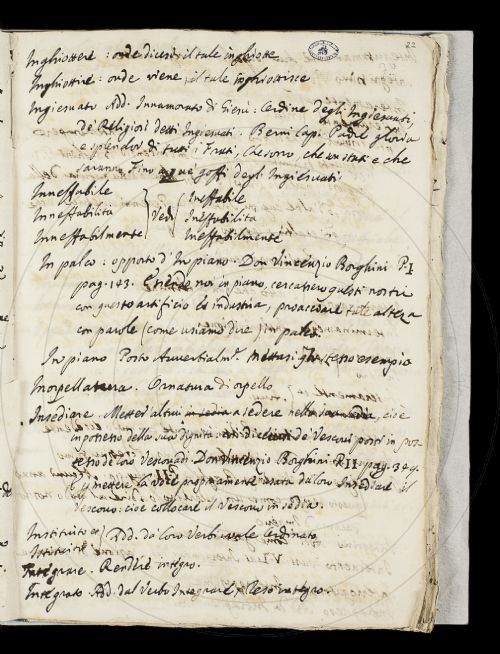 22
Inghiottere: onde dicesi, il tale inghiotte
Inghiottire: onde viene, il tale inghiottisce
Ingiesuato Add. Innamorato di Giesù. Ordine degli Ingiesuati,
de' Religiosi detti Ingiesuati. Berni Cap. Padre gloria
e splendor di tutti i Frati, Che sono, che un stati e che
saranno Fino a que' goffi degli Ingiesuati
Inneffabile Ineffabile
Inneffabilità Vedi Ineffabilità
Inneffabilmente Ineffabilmente
In palco: opposto d'In piano. Don Vincenzio Borghini P. I
pag. 143. noi in piano, cercassero questi nostri
con questo artificio ed industria, procacciare tale altezza
con parole (come usiamo dire) in palco
In piano Posto Avverbialm.e mettasi
Inorpellatura. Ornatura di orpello
Insediare. Metter altrui a sedere nella sedia, cioè
in possesso della sua dignità de' Vescovi posti in pos-
sesso de' loro Vescovadi. Don Vincenzio Borghini P. II pag. 344.
E il mettere la voce propriamente usata da loro Insediare il
Vescovo: cioè collocare il Vescovo in sedia.
Instituito e Add. da' loro Verbi vale Ordinato
Istituito
Integrare. Rendere integro.
Integrato Add. dal Verbo Integrare, Reso integro.